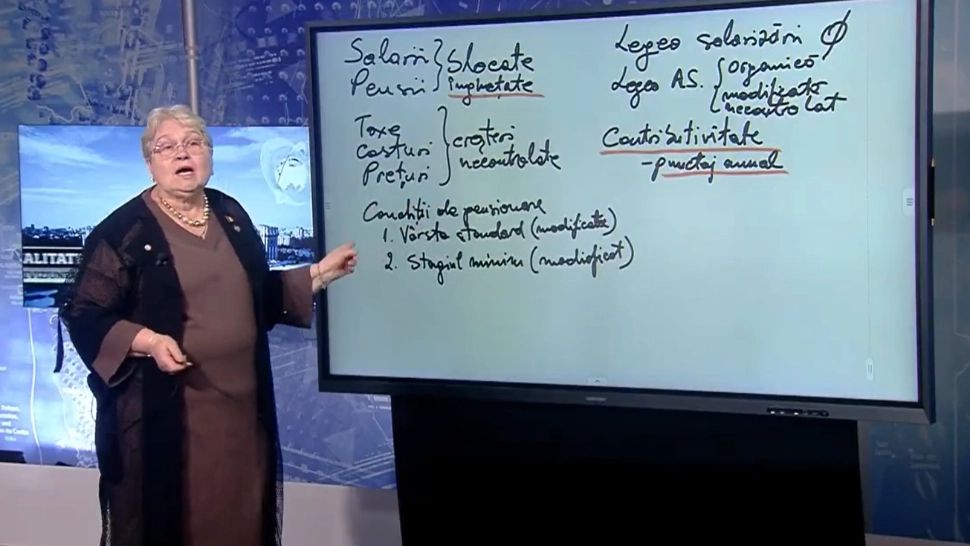 Salarii } blocate
Pensii } înghețate
Taxe
costuri } creșteri
Prețuri } necontrolate
Condiții de pensionare
1. Vârsta standard (modificată)
2. Stagiul minim (modioficat)
Legea salarizării Ø
Legea A.S. { organică
modificată
necontrolat
Contributivitate
- punctaj anual
ALITATE